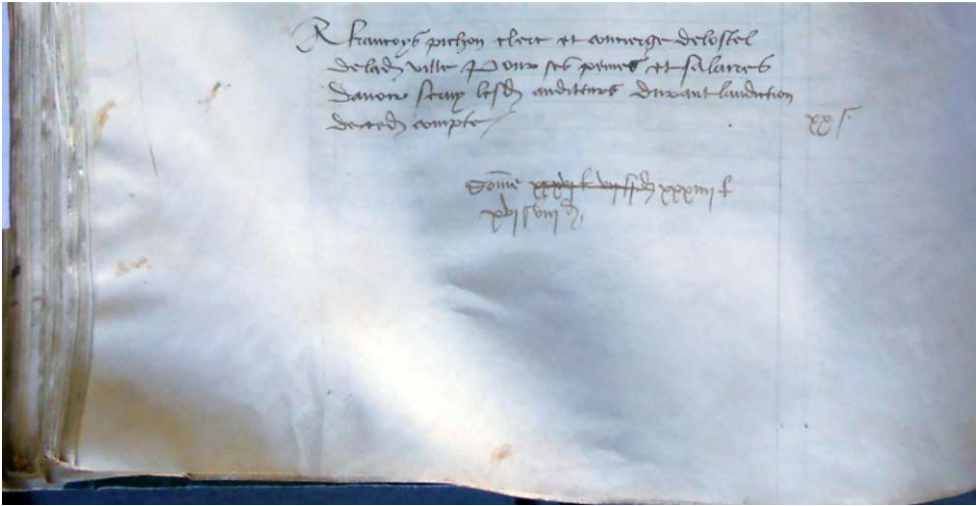 A francoys pichon clerc et concierge delostel
delad ville Pour ses peines et salaires
davoir servy lesd auditeurs durant laudiction
de ced compte xx s
Somme xxxiiii l
xvi s viii d